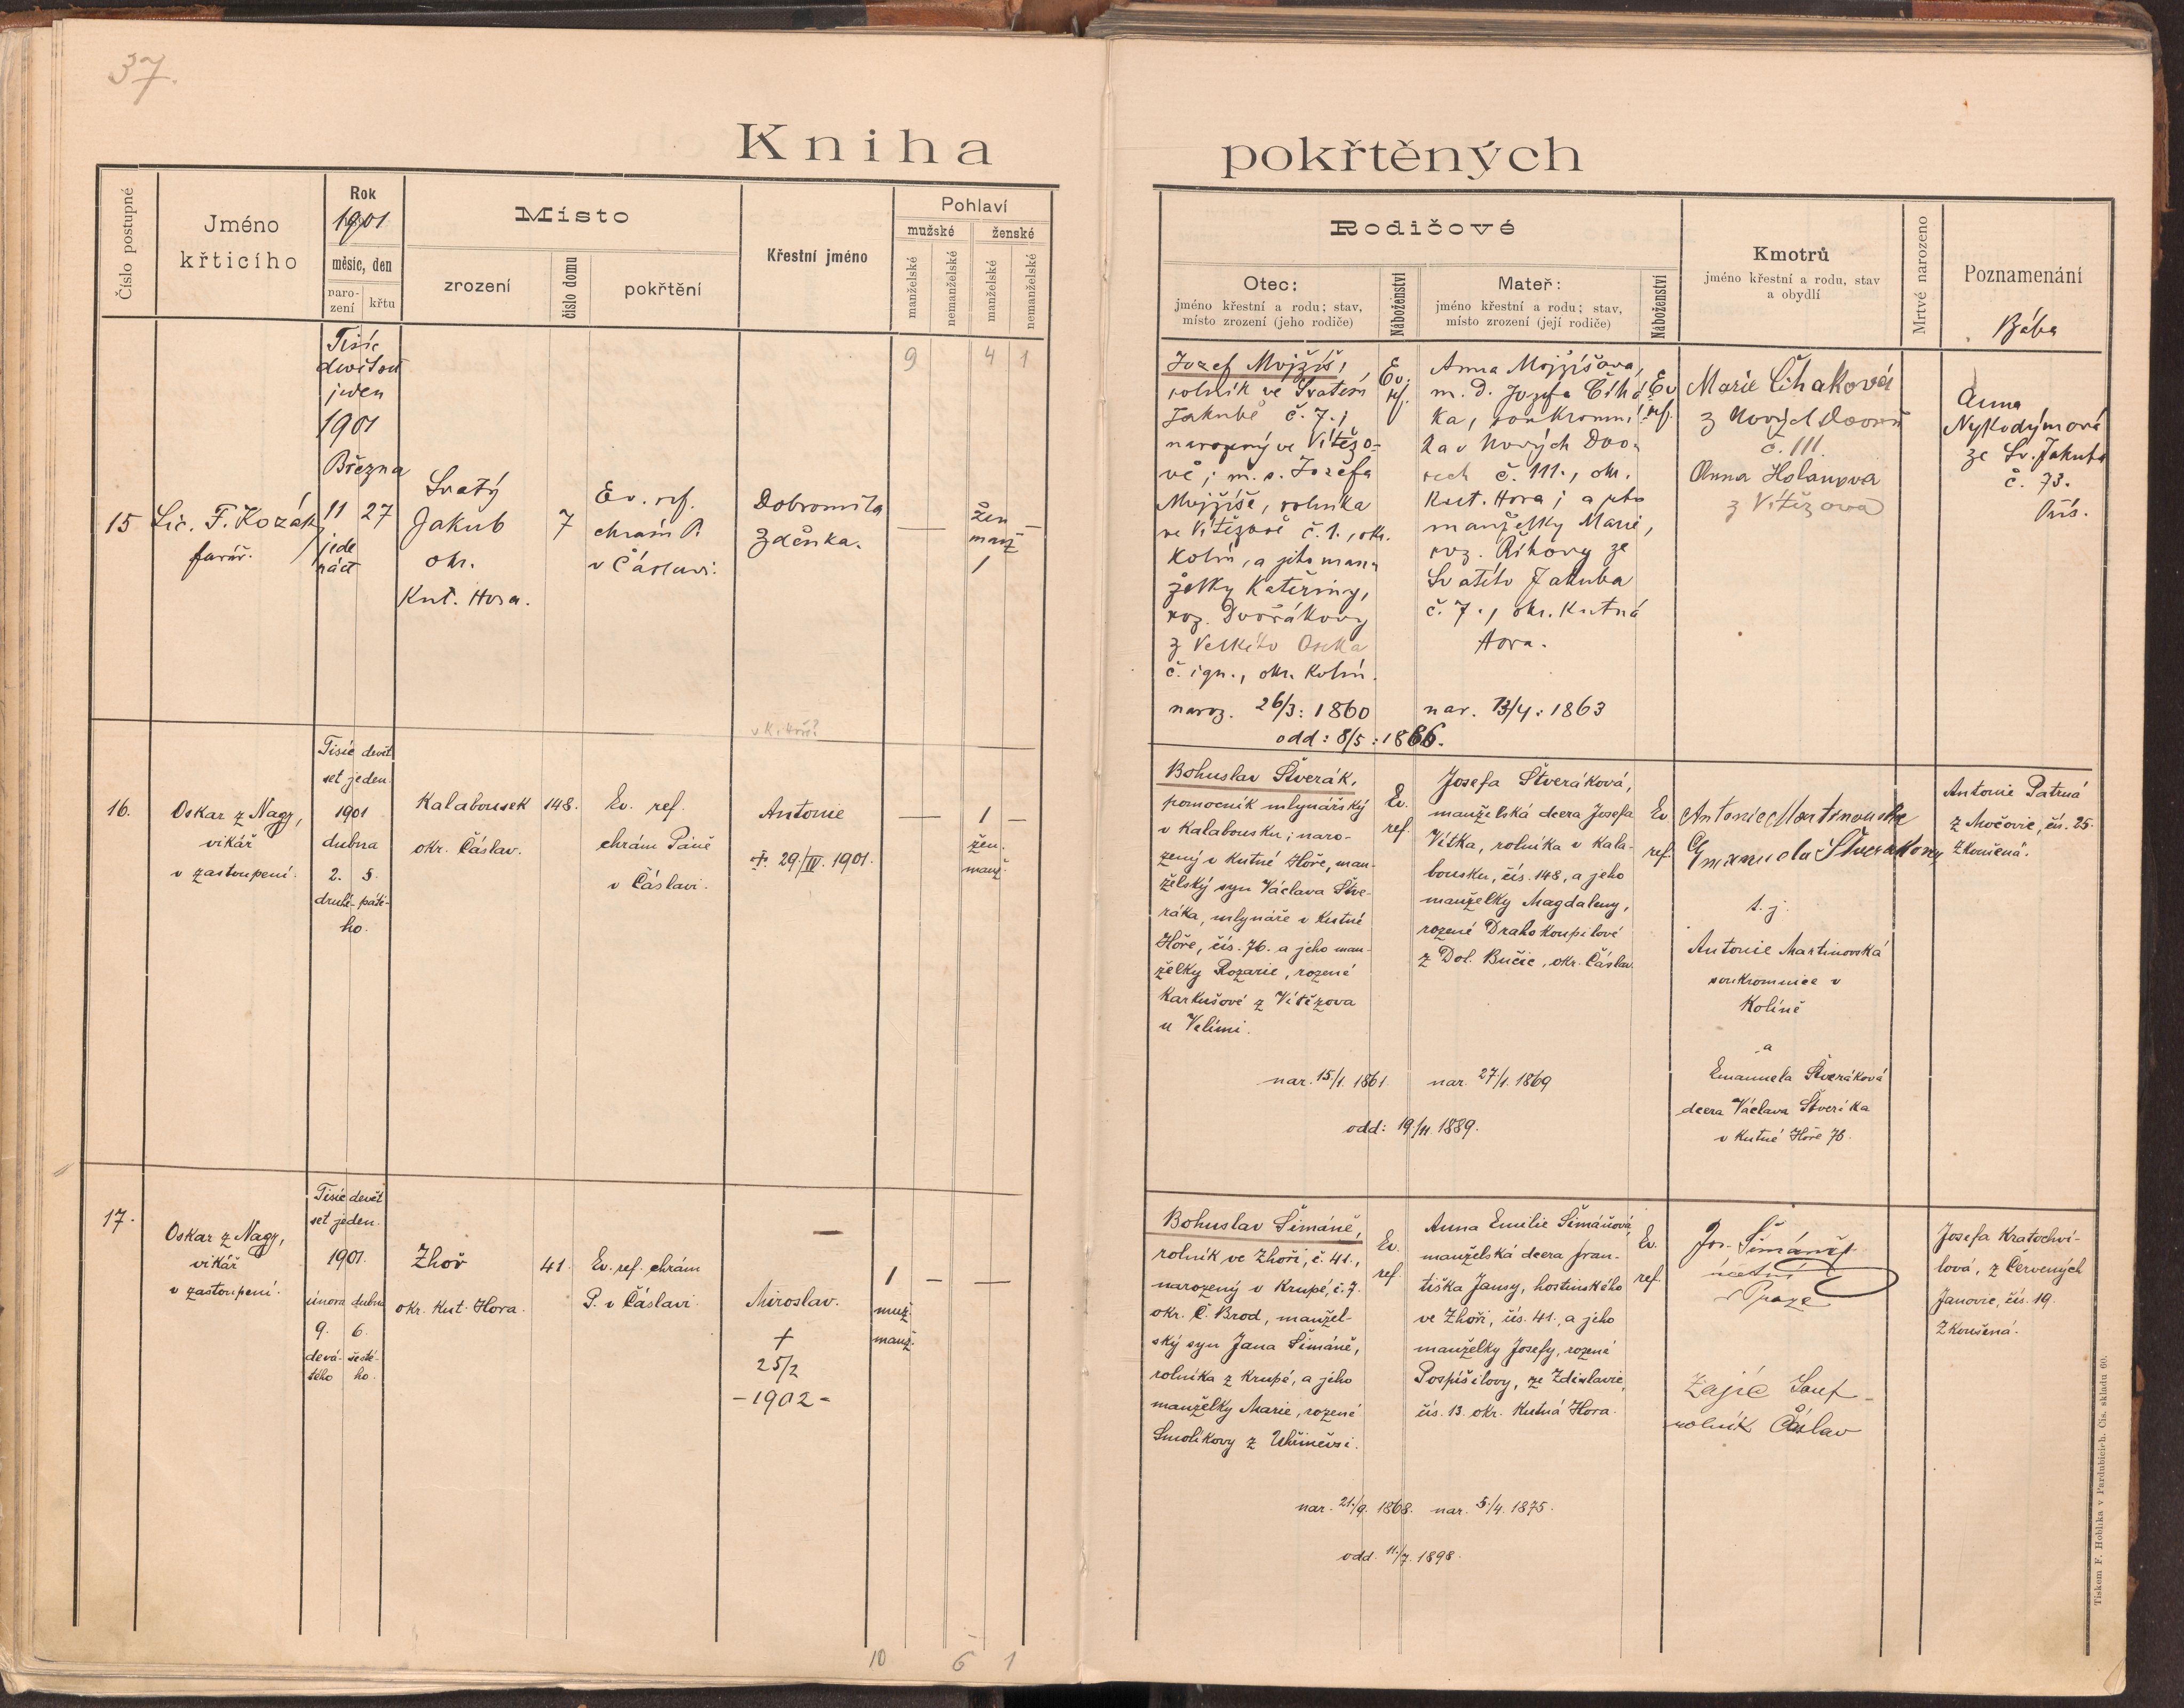 37.
Kniha
pokřtěných
Číslo postupné
Jméno
křticího
Rok
1901
měsíc, den
naro-
zení
křtu
Místo
zrození
číslo domu
pokřtění
Křestní jméno
Pohlaví
mužské
ženské
manželské
nemanželské
manželské
nemanželské
Rodičové
Otec:
jméno křestní a rodu; stav,
místo zrození (jeho rodiče)
Náboženství
Mateř:
jméno křestní a rodu; stav,
místo zrození (její rodiče)
Náboženství
Kmotrů
jméno křestní a rodu, stav
a obydlí
Mrtvě narozeno
Poznamenání
Bába
15
Lic. F. Kozák
farář.
Tisíc
devětset
jeden
1901
Března
11 27
jede
náct
Svatý
Jakub
okr.
Kut. Hora.
7
Ev. ref.
chrám P.
v Čáslavi.
Dobromila
Zdeňka.
9 4 1
— žen —
manž
1
Jozef Mojžíš,
rolník ve Svatém
Jakubě č. 7.;
narozený ve Vítězo-
vě; m. s. Jozefa
Mojžíše, rolníka
ve Vítězově č. 1., okr.
Kolín, a jeho man-
želky Kateřiny,
roz. Dvořákovy
z Velkého Oseka
č. ign., okr. Kolín.
naroz. 26/3: 1860
Ev.
ref.
Anna Mojžíšova,
m. d. Jozefa Čihá
ka, soukromní
ka v Nových Dvo-
rech č. 111., okr.
Kut. Hora; a jeho
manželky Marie,
roz. Říhovy ze
Svatého Jakuba
č. 7., okr. Kutná
Hora.
nar. 13/4: 1863
odd: 8/5: 1886.
Ev
ref.
Marie Čihaková
z Nových Dvorů
č. 111.
Anna Holanova
z Vítězova
Anna
Nykodýmová
ze Sv. Jakuba
č. 73.
16.
Oskar z Nagy,
vikář
v zastoupení.
Tisíc devět
set jeden
1901
dubna
2. 5.
druhé- páté-
ho.
Kalabousek
okr. Čáslav.
148.
Ev. ref.
chrám Páně
v Čáslavi.
Antonie
†. 29./IV. 1901.
— 1 —
žen.
manž.
Bohuslav Štverák,
pomocník mlynářský
v Kalabousku; naro-
zený v Kutné Hoře, man-
želský syn Václava Štve-
ráka, mlynáře v Kutné
Hoře, čís. 76. a jeho man-
želky Rozarie, rozené
Karkušové z Vítězova
u Velimi.
nar. 15./1. 1861.
Ev.
ref.
Josefa Štveráková,
manželská dcera Josefa
Vítka, rolníka v Kala-
bousku, čís. 148, a jeho
manželky Magdaleny,
rozené Drahokoupilové
z Dol. Bučic, okr. Čáslav.
nar. 27/1. 1869
odd: 19/11. 1889.
Ev
ref.
Antonie Martinovska
Emanuela Štverakova
t. j.
Antonie Martinovská
soukromnice v
Kolíně
a
Emanuela Štveráková
dcera Václava Štveráka
v Kutné Hoře 76.
Antonie Patrná
z Močovic, čís. 25.
Zkoušená.
17.
Oskar z Nagy,
vikář
v zastoupení.
Tisíc devět
set jeden.
1901.
února dubna
9. 6.
devá- šesté-
tého ho.
Zhoř
okr. Kut. Hora.
41.
Ev. ref. chrám
P. v Čáslavi
—
Miroslav.
†
25/2
-1902-
1 — —
muž.
manž.
Bohuslav Šimáně,
rolník ve Zhoři, č. 41.,
narozený v Krupé, č. 7.
okr. Č. Brod, manžel-
ský syn Jana Šimáně,
rolníka z Krupé, a jeho
manželky Marie, rozené
Smolíkovy z Uhříněvsi.
nar. 21./9. 1868.
Ev.
ref.
Anna Emilie Šimáňová,
manželská dcera Fran-
tiška Jansy, hostinského
ve Zhoři, čís. 41., a jeho
manželky Josefy, rozené
Pospíšilovy, ze Zdislavic,
čís. 13. okr. Kutná Hora.
nar. 5./4. 1875.
odd. 11./7. 1898.
Ev.
ref.
Jos. Šimáně
účetní
v Praze
Zajíc Josef
rolník Čáslav
Josefa Kratochví-
lová, z Červených
Janovic, čís. 19.
Zkoušená.
10 6 1
Tiskem F. Hoblíka v Pardubicích. Čís. skladu 60.